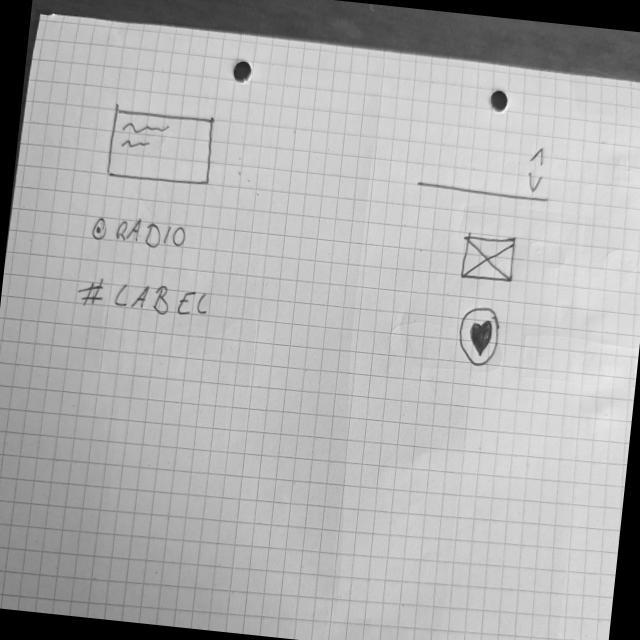 RADIO
#LABEL